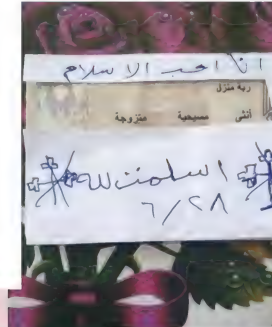 انا احب الاسلام
ربة منزل
أنثى مسيحية متزوجة
اسلمت لله
٦/٢٨